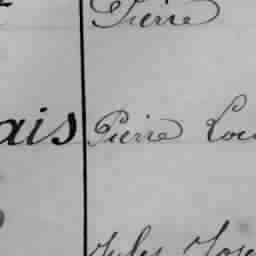 Pierre
ais Pierre Lou
Jules Jose